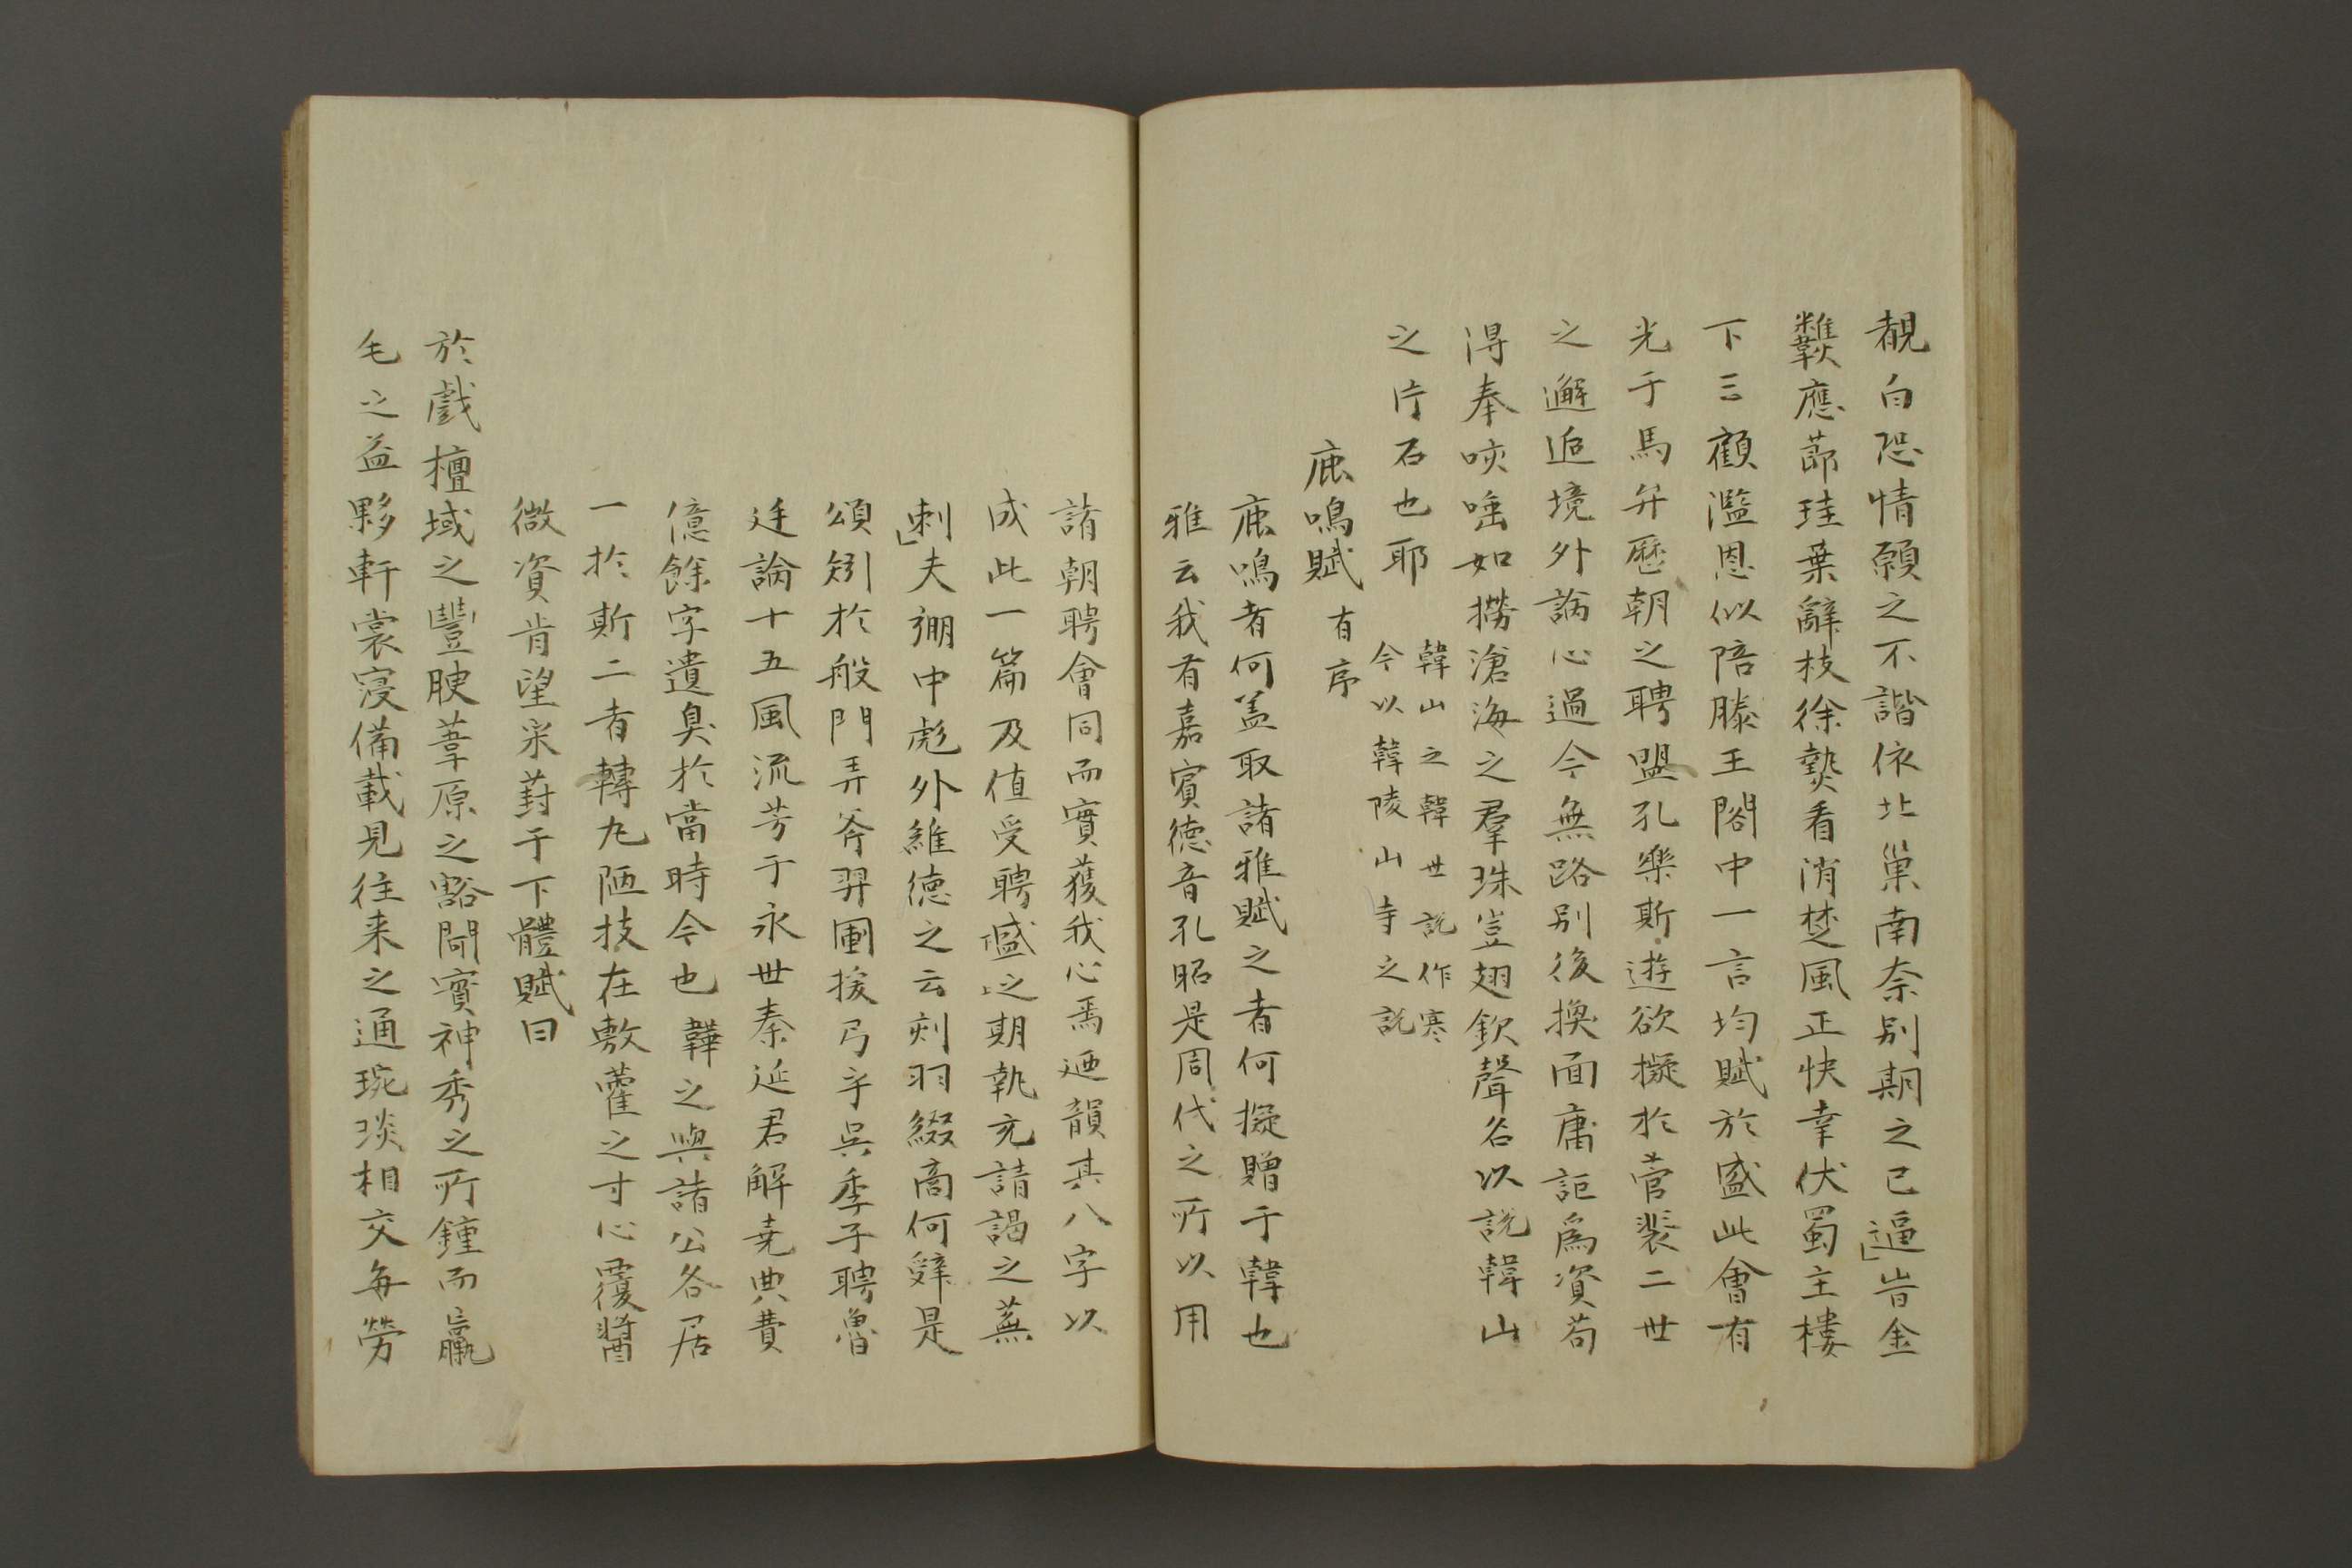 覩白恐情願之不諧依北巣南奈別期之已逼」旹金
應莭珪葉辭枝徐爇看消楚風正快幸伏蜀主樓
下三顧濫恩似陪滕王閣中一言均賦於盛此會有
光于馬弁歷朝之聘盟孔樂斯遊欲擬於菅裴二世
之邂逅境外論心過今無路別後換面庸詎為資苟
得奉咳唾如撈滄海之羣珠豈翅欽聲名以説韓山
之片石也耶
韓山之韓世説作寒
今以韓陵山寺之説
鹿鳴賦 有序
鹿鳴者何盖取諸雅賦之者何擬贈于韓也
雅云我有嘉賓徳音孔昭是周代之所以用
諸朝聘會同而實獲我心焉廼韻其八字以
成此一篇及值受聘盛之期執充請謁之蕪
刺」夫弸中彪外維徳之云剡羽綴高何辤是
頌矧於般門弄斧羿圃援弓乎呉季子聘魯
廷論十五風流芳于永世秦延君解尭典費
億餘字遺臭於當時今也韡之與諸公各居
一於斯二者轉丸陋技在敷藿之寸心覆醬
微資肯望采葑于下體賦曰
於戲檀域之豐腴葦原之豁閜實神秀之所鍾而羸
毛之益夥軒裳寖備載見往来之通琬琰相交每勞